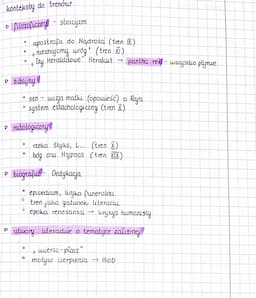 konteksty do trenów
filozoficzny - stoicyzm
apostrofa do Mądrości (tren IX)
"nieznajomy wróg" (tren XI)
"łzy Heraklitowe" Heraklit → panta rei - wszystko płynie
biblijny
sen - wizja matki (opowieść) o Raju
system eschatologiczny (tren X)
mitologiczny
rzeka Styks, L... (tren X)
bóg snu Hypnos (tren XIX)
biografia - Dedykacja
epicedium, liryka funeralna
tren jako gatunek literacki
epoka renesansu → kryzys humanisty
utwory literackie o tematyce żałobnej
"wiersz-płacz"
motyw cierpienia → Hiob